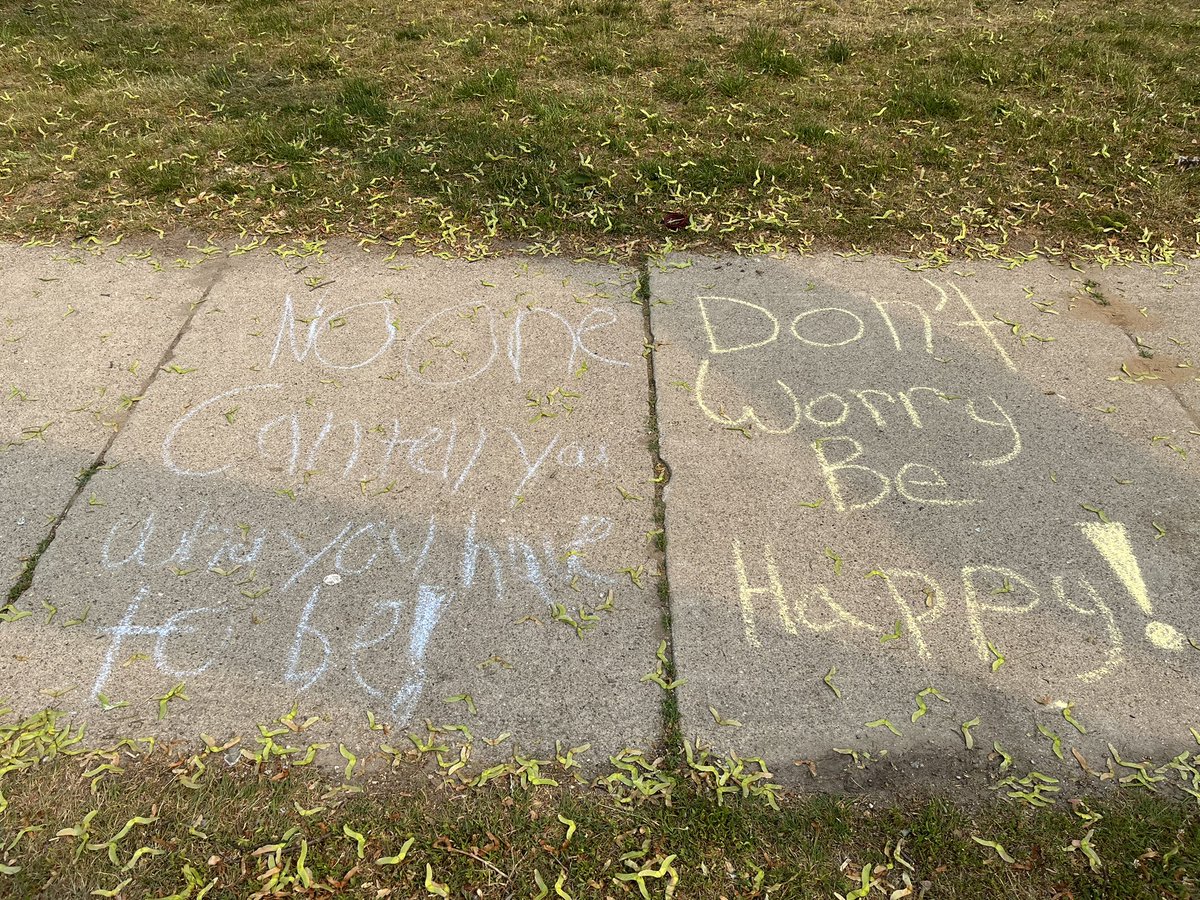 NO One
Can tell you
who you have
to be!
Don't
Worry
Be
Happy!